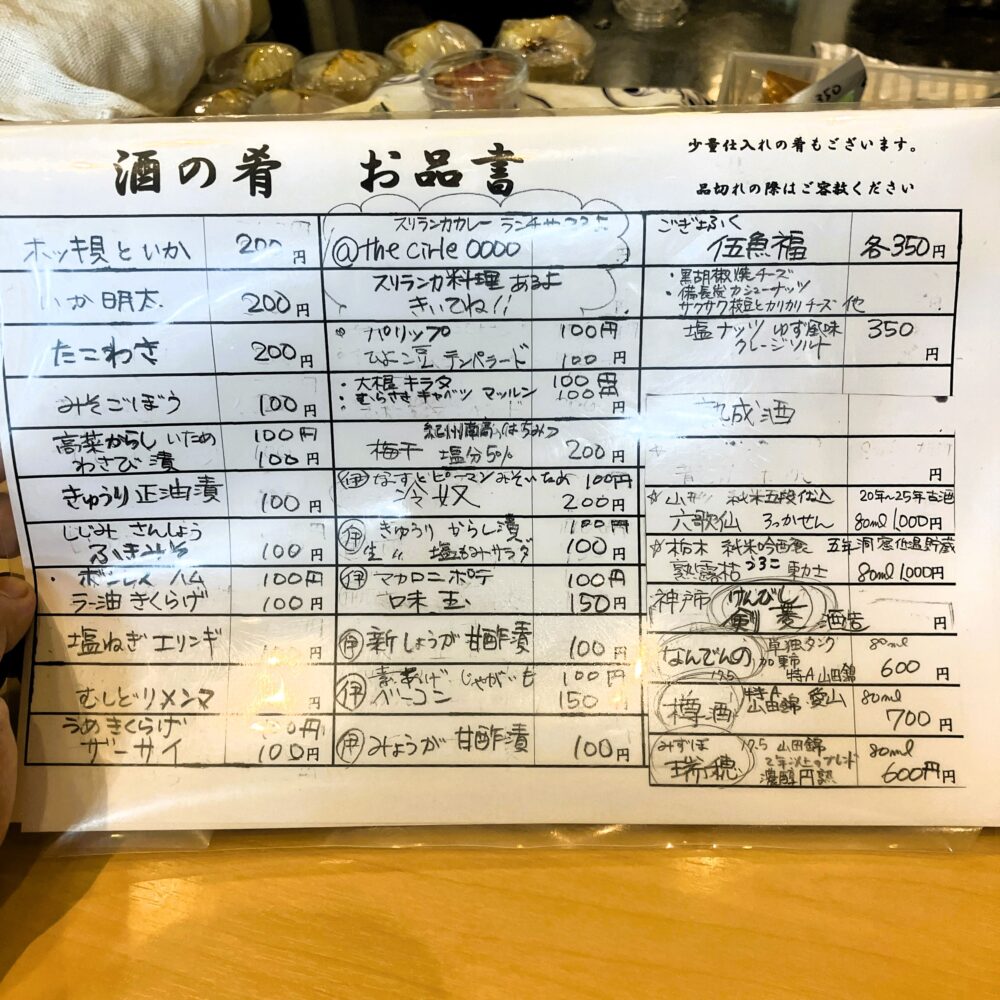 酒の肴 お品書
少量仕入れの肴もございます。
品切れの際はご容赦ください
ホッキ貝といか 200円
いか明太 200円
たこわさ 200円
みそごぼう 100円
高菜からしいため 100円
わさび漬 100円
きゅうり正油漬 100円
しじみさんしょう
ふきみそ 100円
・ボンレスハム 100円
ラー油きくらげ 100円
塩ねぎエリンギ 100円
むしどりメンマ 円
うめきくらげ 100円
ザーサイ 100円
スリランカカレー
@the cirle 0000
スリランカ料理あるよ
きいてね!!
・パリップ 100円
ひよこ豆 テンペラード 100円
・大根キラタ 100円
・むらさきキャベツ マッルン 100円
円
紀州南高はちみつ
梅干 塩分5% 200円
伊 なすとピーマンみそいため 100円
冷奴 200円
伊 きゅうりからし漬 100円
生 〃 塩もみサラダ 100円
伊 マカロニポテ 100円
味玉 150円
伊 新しょうが甘酢漬 100円
伊 素あげじゃがいも 100円
ベーコン 150円
伊 みょうが甘酢漬 100円
ごぎょふく
伍魚福 各350円
・黒胡椒焼チーズ
・備長炭カシューナッツ
サクサク枝豆とカリカリチーズ 他
塩ナッツ ゆず風味 350
クレージソルト 円
熟成酒
円
☆山形 純米五段仕込 20年~25年古酒
六歌仙 ろっかせん 80ml 1000円
☆栃木 純米吟醸 五年洞窟低温貯蔵
熟露枯 うろこ 東力士 80ml 1000円
神戸 けんびし
剣菱 酒造 円
なんでんの 単独タンク 80ml
17.5 加東市 特A山田錦 600円
樽酒 特A 山田錦 愛山 80ml
700円
みずほ 17.5 山田錦 80ml
瑞穂 2年以上のブレンド 600円
濃醇円熟 円
350